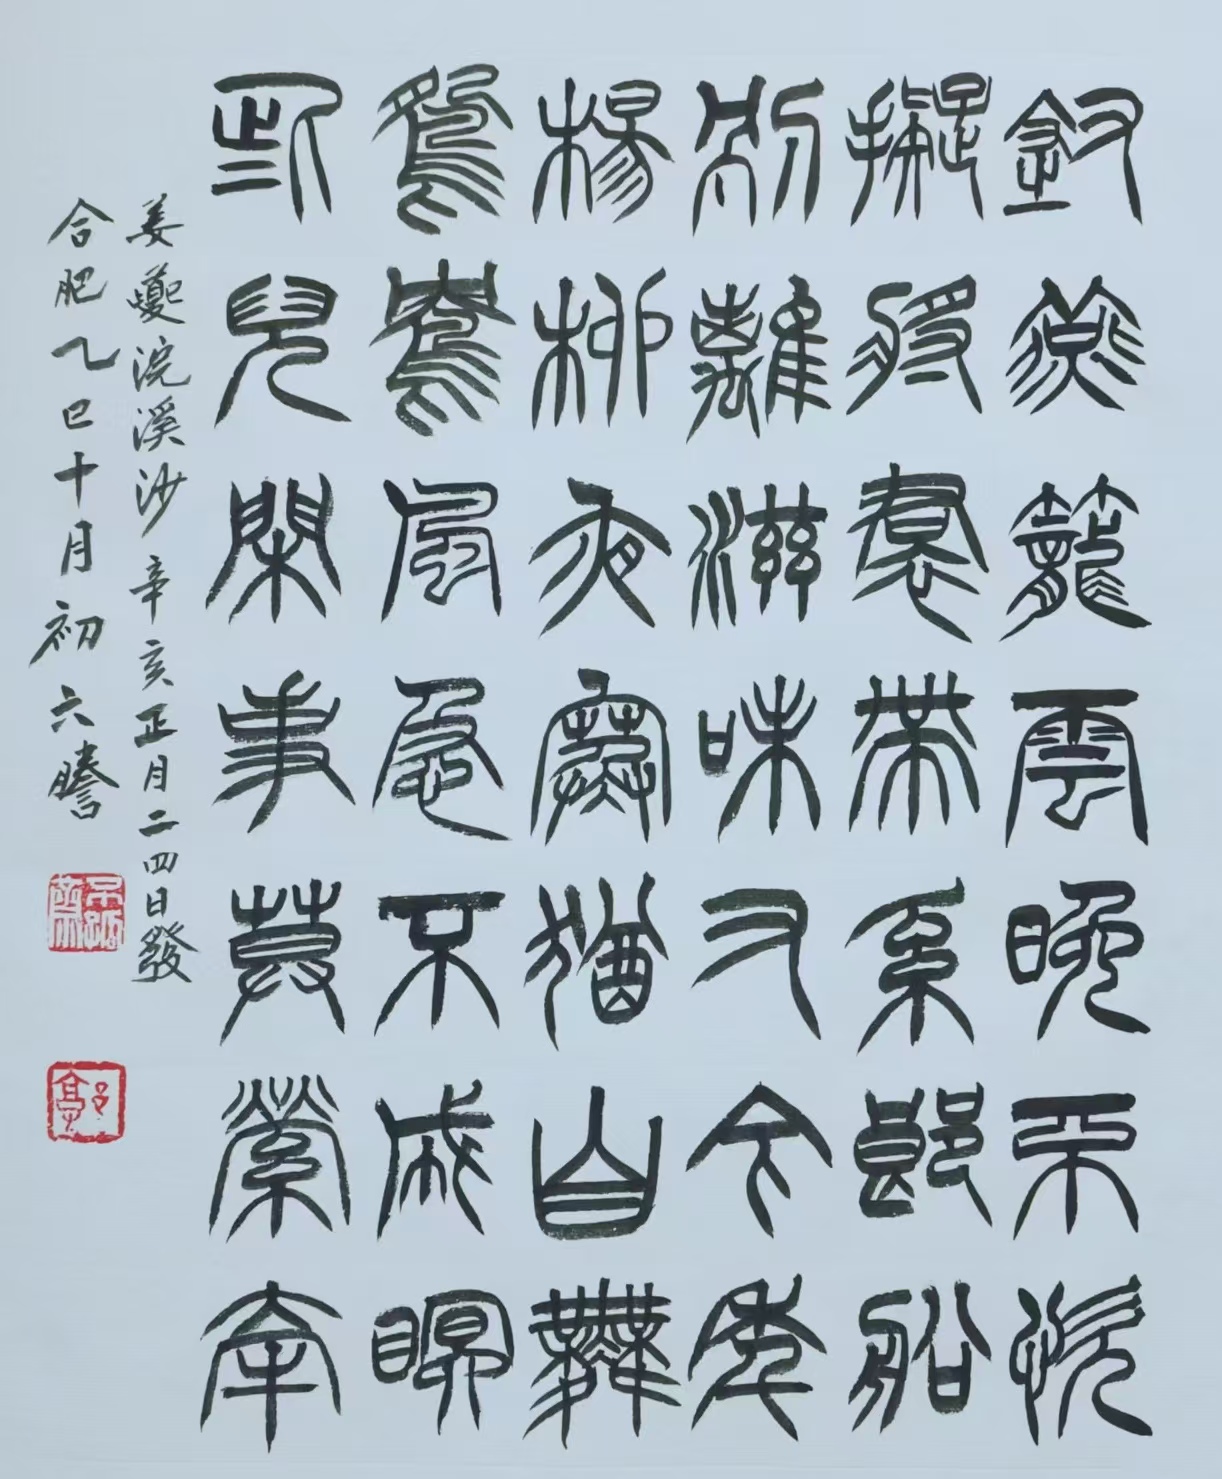 釵燕籠雲晚不忺
擬將裠帶系郎船
別離滋味又今年
楊柳夜寒猶自舞
鴛鴦風急不成眠
些兒閑事莫縈牽
姜夔浣溪沙辛亥正月二四日發
合肥乙巳十月初六謄